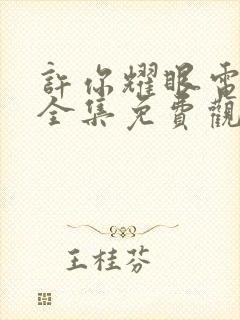 許你耀眼電
全集免費觀
王桂芬